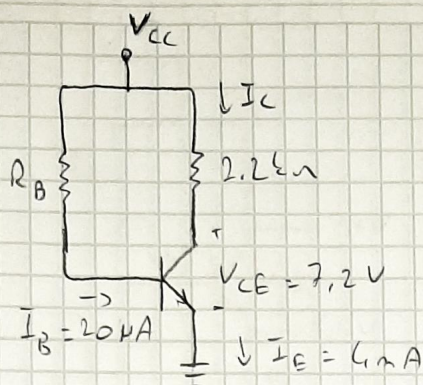 V_CC
↓ I_C
R_B
2.2kΩ
+
V_CE = 7,2 V
-
→
I_B = 20 µA
↓ I_E = 4mA